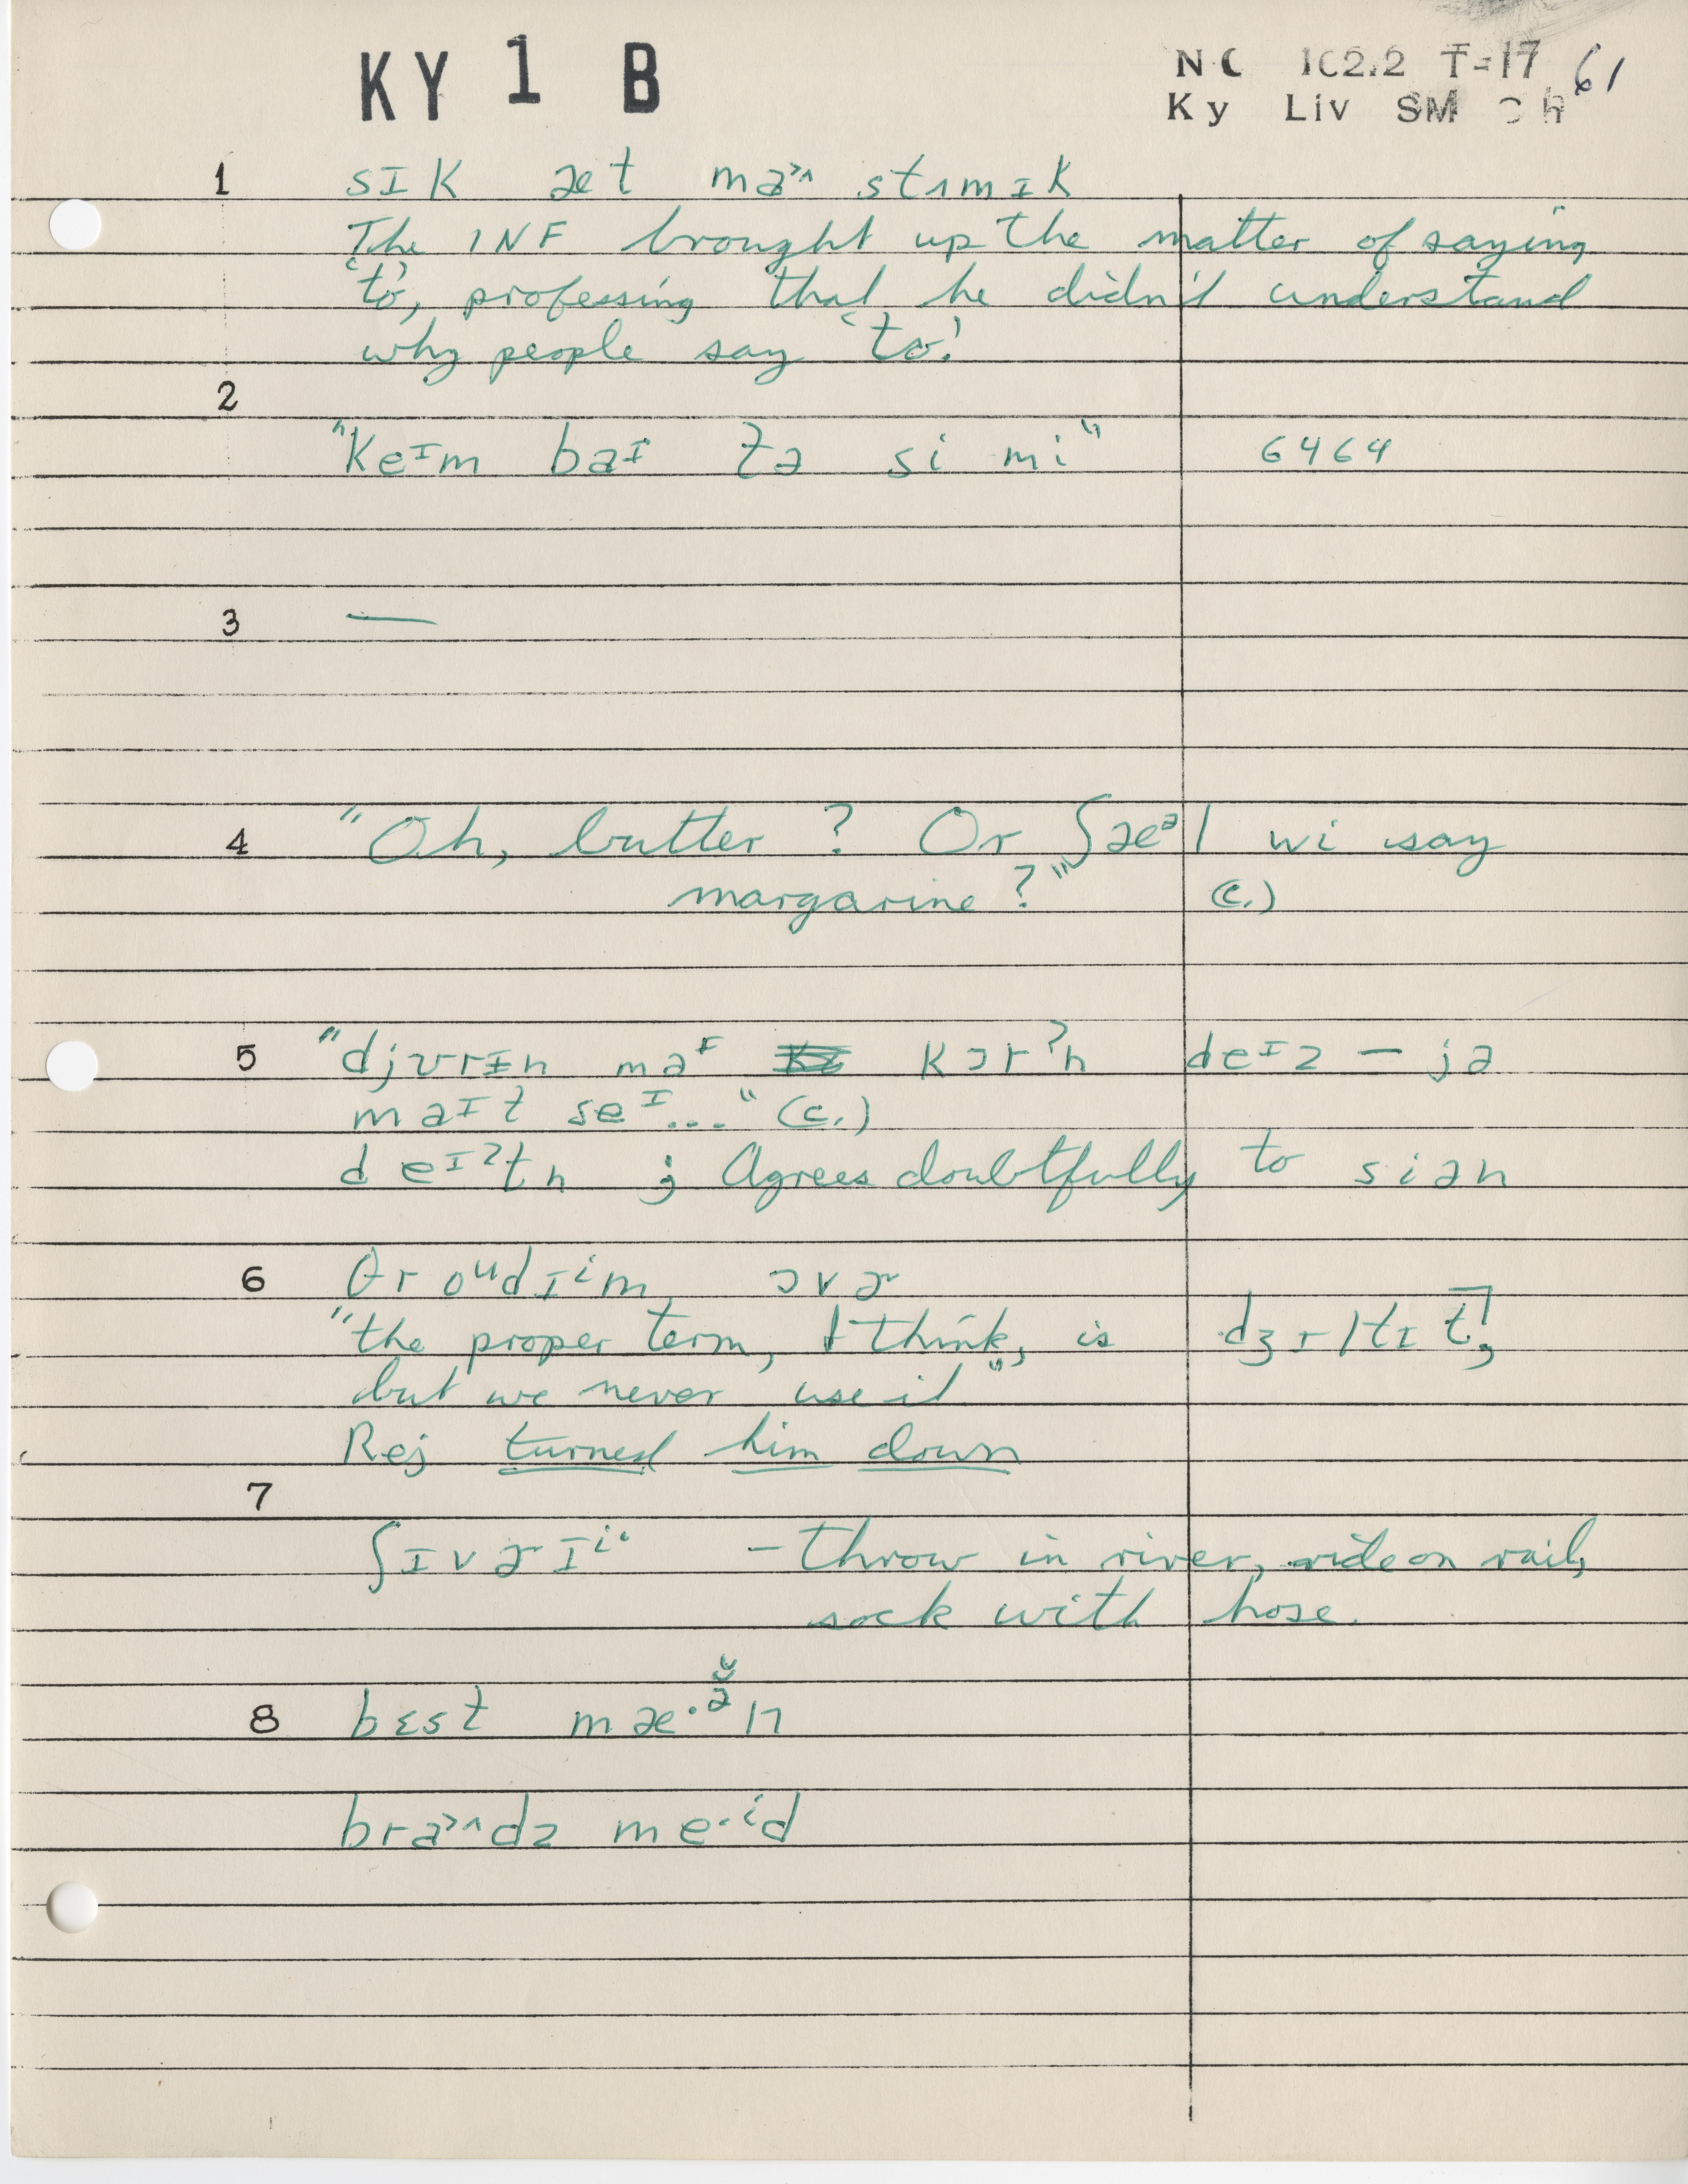 KY 1 B
NC 102.2 T=17 61
Ky Liv SM
1 sɪk æt ma˃˄ stʌmɪk
The INF brought up the matter of saying
‘to’, professing that he didn't understand
why people say ‘to.’
2
"keᶦm baᶦ t̬ə si mi" 6464
3 —
4 "Oh, butter? Or ʃæᵊl wi say
margarine?" (c.)
5 "djʊrɪn maᶦ kɔrʔn deᶦz — jə
maᶦt seᶦ..." (c.)
deᶦʔtn ; Agrees doubtfully to siən
6 θroᵘdɪⁱm ɔvɚ
"the proper term, I think, is dʒɪltɪt̚;
but we never use it"
Rej turned him down
7
ʃɪvɚɪⁱ· – throw in river, ride on rail,
sock with hose.
8 bɛst mæ·ᵊ̆n
bra˃˄dz me·ⁱd